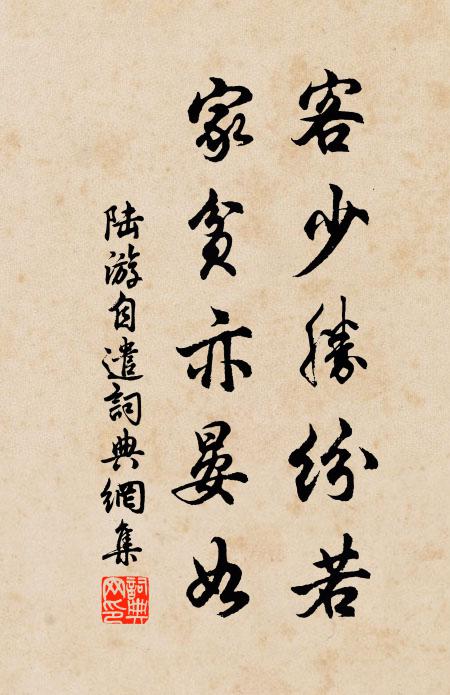 客少勝紛若
家貧亦晏如
陸游自遣詞典網集